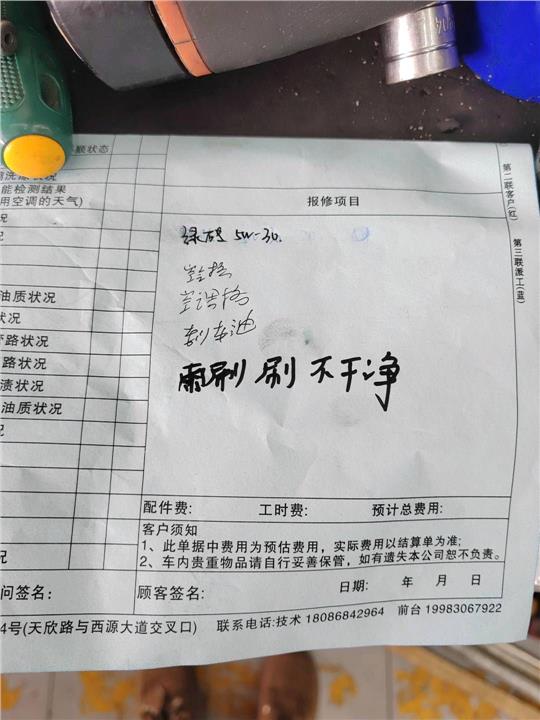 象状态
能检测结果
用空调的天气)
况
况
油质状况
状况
管路状况
路状况
渍状况
油质状况
况
况
报修项目
5W-30.
空格
空调格
刹车油
雨刷刷不干净
配件费: 工时费: 预计总费用:
客户须知
1、此单据中费用为预估费用，实际费用以结算单为准;
2、车内贵重物品请自行妥善保管，如有遗失本公司恕不负责。
日期: 年 月 日
问签名: 顾客签名:
4号(天欣路与西源大道交叉口) 联系电话:技术 18086842964 前台 19983067922
第二联客户(红)
第三联派工(蓝)